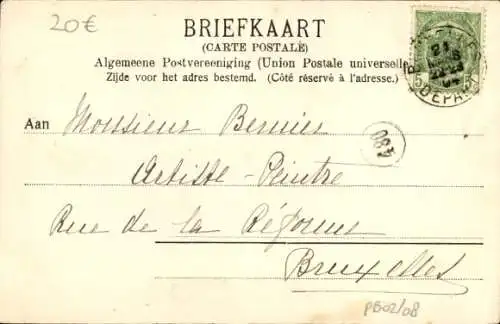 20€
BRIEFKAART
(CARTE POSTALE)
Algemeene Postvereeniging (Union Postale universelle)
Zijde voor het adres bestemd. (Côté réservé à l'adresse.)
Aan Monsieur Bernier
Artiste-Peintre
Rue de la Réforme
Bruxelles
480
PB02/08